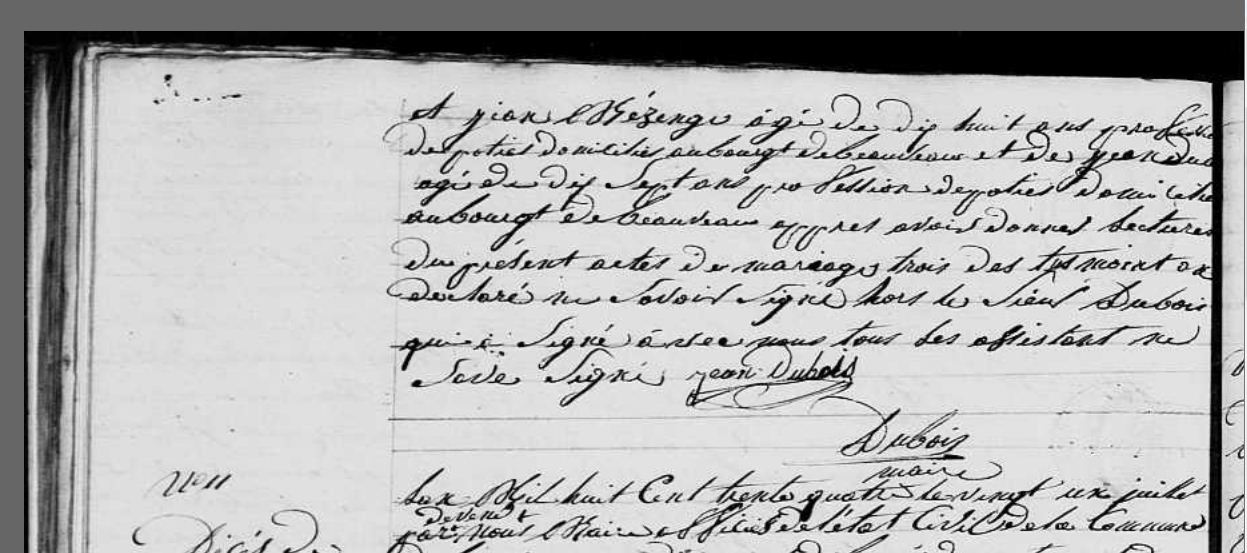 et jean Mézenge âgé de dix huit ans profession
de potier domicilier aubourgt debeauveau et de jean du
agé de dix sept ans profession depotier domicilie
aubourgt debeauveau appres avoir donnes lectures
du présent actes de mariage trois des tesmoint on
declaré ne Savoir Signé hors le Sieur Dubois
qui à Signé avec nous tous les assistant ne
Save Signé jean Dubois
Dubois
maire
non
Lan Mil huit Cent trente quatre le vingt un juillet
devent
par nous Maire officier de létat Civil de la Commune
Décés de